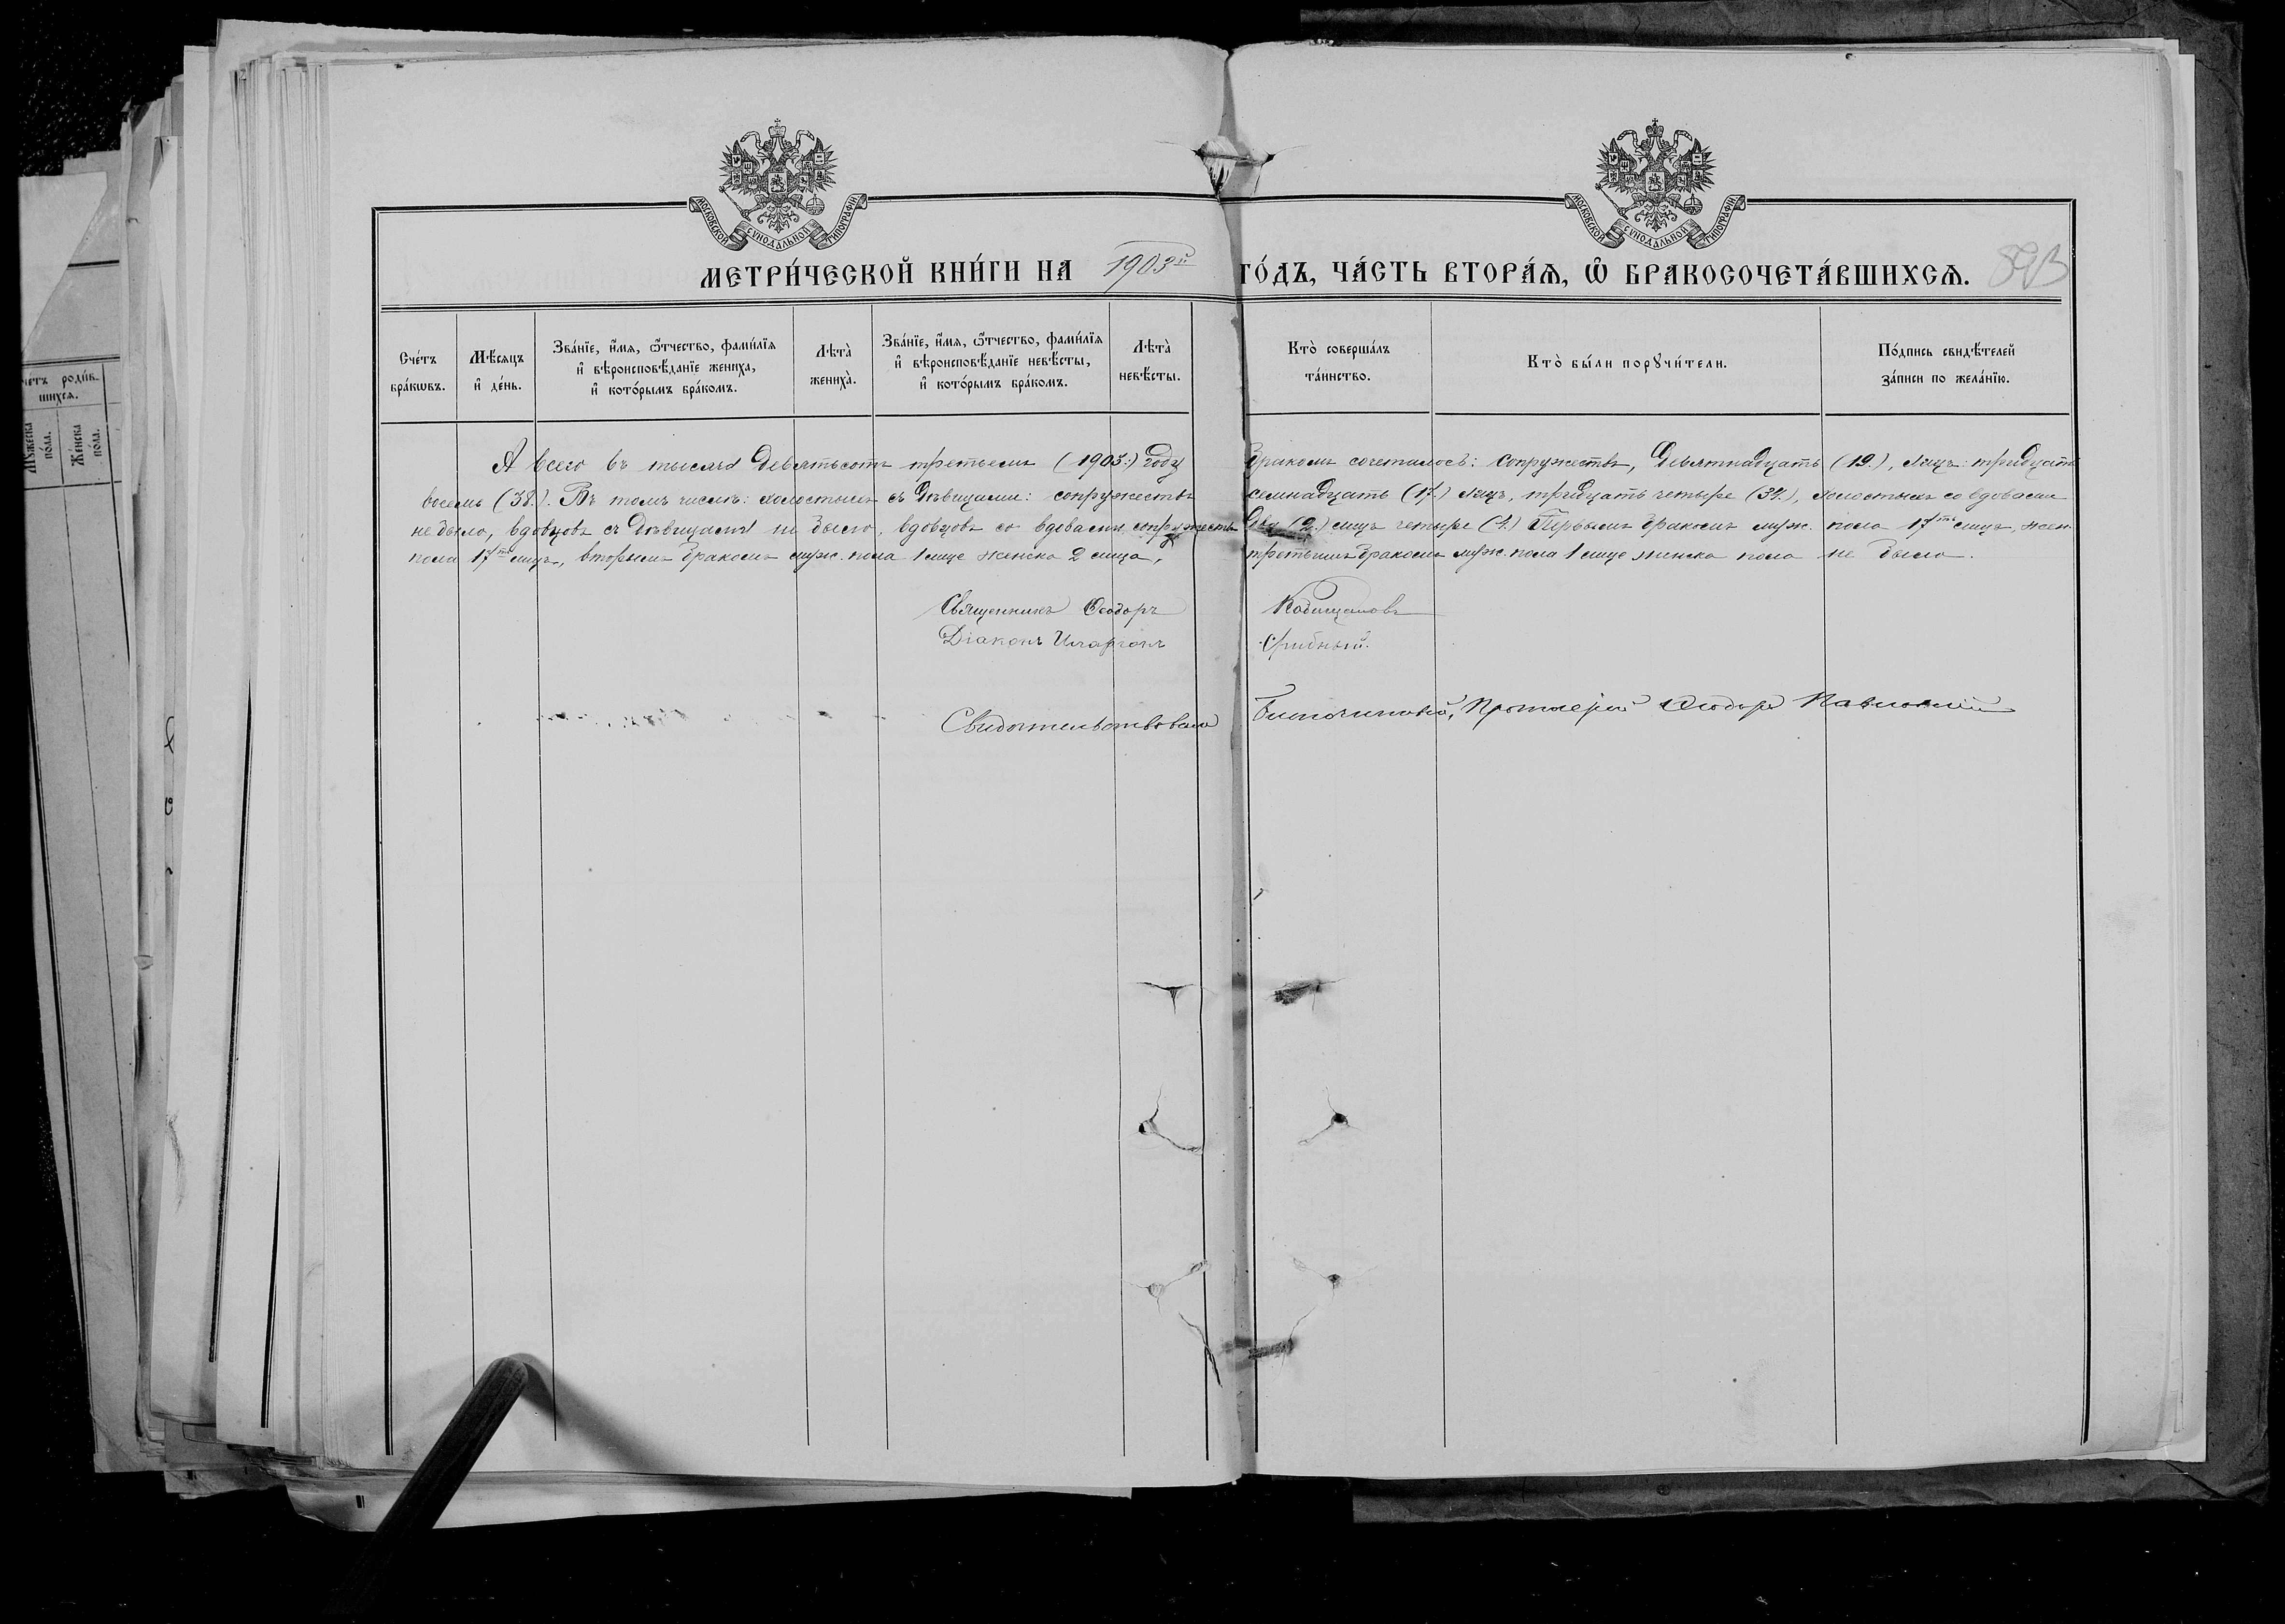 МОСКОВСКОЙ СѴНОДАЛЬНОЙ ТИПОГРАФІИ
МОСКОВСКОЙ СѴНОДАЛЬНОЙ ТИПОГРАФІИ
МЕТРИ́ЧЕСКОЙ КНИ́ГИ НА 1903й ГО́ДЪ, ЧА́СТЬ ВТОРА́Ѧ, Ѽ БРАКОСОЧЕТА́ВШИХСѦ.
Сче́тъ
бра́кѡвъ.
Мѣ́сяцъ
и҆ де́нь.
Зва́нїе, и҆́мѧ, ѻ҆́тчество, фами́лїѧ
и҆ вѣроисповѣ́данїе жениха̀,
и҆ кото́рымъ бра́комъ.
Лѣта̀
жениха̀.
Зва́нїе, и҆́мѧ, ѻ҆́тчество, фами́лїѧ
и҆ вѣроисповѣ́данїе невѣ́сты,
и҆ кото́рымъ бра́комъ.
Лѣта̀
невѣ́сты.
Кто̀ соверша́лъ
та́инство.
Кто̀ бы́ли порꙋчи́тели.
По́дпись свидѣ́телей
за́писи по жела́нїю.
А всего въ тысяча девятьсотъ третьемъ (1903:) году бракомъ сочеталось: супружествъ, девятнадцать (19.), лицъ: тридцать
восемь (38). Въ томъ числѣ: холостыхъ съ дѣвицами: супружествъ семнадцать (17.) лицъ, тридцать четыре (34.), холостыхъ со вдовами
не было, вдовцовъ съ дѣвицами не было, вдовцовъ со вдовами супружествъ два (2.) лицъ четыре (4.) Первымъ бракомъ муж. пола 17ть лицъ, жен.
пола 17ть лицъ, вторымъ бракомъ муж. пола 1 лице женска 2 лица, третьимъ бракомъ муж. пола 1 лице женска пола не было.
Священникъ Ѳеодоръ
Діаконъ Иларіонъ
Свидѣтельствовалъ Благочинный, Протоіерей Ѳеодоръ
четъ роди́в-
шихсѧ.
Мꙋ́жеска
по́ла.
Же́нска
по́ла.